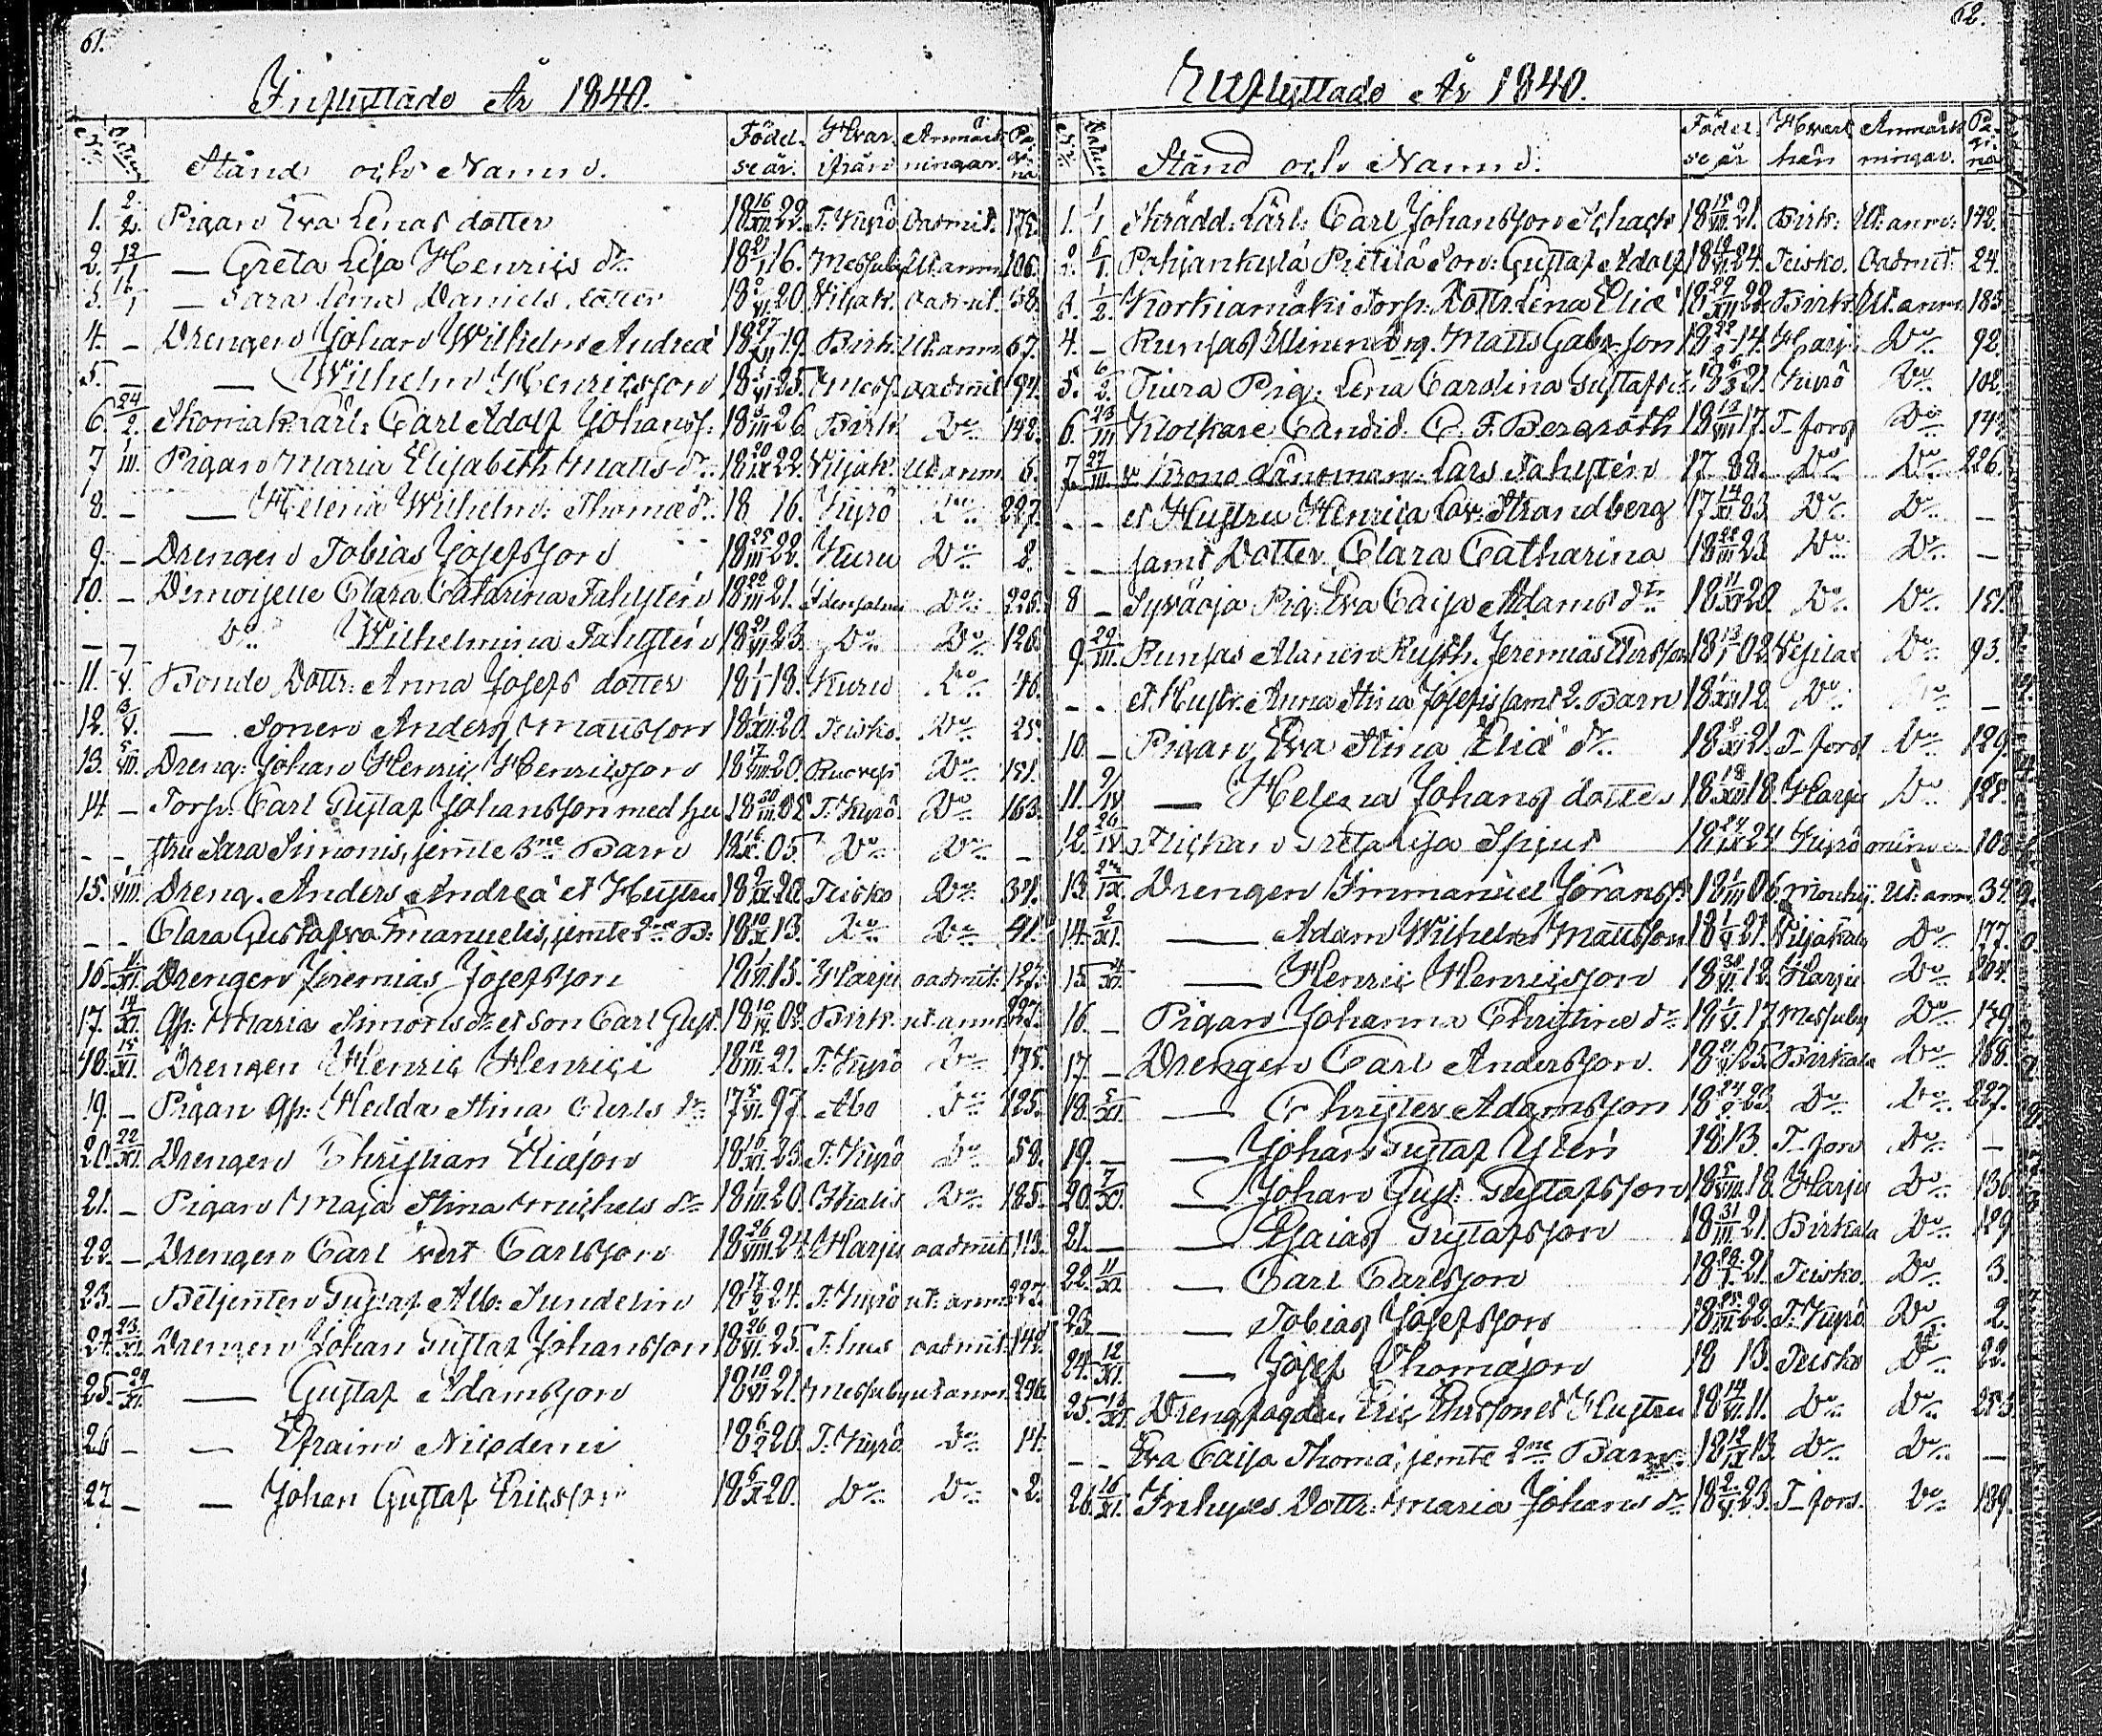 61.
Inflyttade År 1840.
N:r Datum Stånd och Namn. Födel- se år. Hvar- ifrån Anmärk- ningar. Pa- gi- na
1. 2/2. Pigan Eva Lenas dotter 18 16/XII 22. T. Kyrö oadmit. 175.
2. 12/ — Greta Lisa Henrics dr. 18 21/1 16. Messuby Ut. anm. 106.
3. 16/1 — Sara Lena Daniels dotter 18 /VI 20. Viljak. oadmit. 58.
4. – Drengen Johan Wilhelm Andreæ 18 27/XII 19. Birk. Ut. anm. 67.
5. – — Wilhelm Henricsson 18 /VI 25. Mess. oadmit. 94.
6. 24/2. Skomak. Lärl: Carl Adolf Johanss. 18 /III 26. Birk. Do. 142.
7 /III. Pigan Maria Elisabeth Matts dr. 18 20/IX 22. Viljak. Ut anm. 6.
8. – — Helena Wilhelm. Thomæ dr. 18 16. Kyrö Do. 227.
9. – Drengen Tobias Josefsson 18 25/III 22. Kuru Do. 2.
10. – Demoiselle Clara Catarina Fahlstén 18 22/III 21. Idensalmi Do. 226.
– – Do. Wilhelmina Fahlstén 18 21/VI 23. Do. Do. 126.
11. 7/V. Bonde Dottr. Anna Josefs dotter 18 1/1 18. Kuru Do. 46.
12. 3/V. — Sonen Anders Mattsson 18 1/XII 20. Teisko. Do. 25.
13. 5/VII. Dreng. Johan Henric Henricsson 18 17/VIII 20. Ruovesi Do. 151.
14. – Torp. Carl Gustaf Johansson med hu 18 30/III 02. T. Kyrö. Do. 163.
– – stru Sara Simonis, jemte 3ne Barn 18 16/X. 05. Do. Do. –
15. /VIII. Dreng. Anders Andreæ et Hustru 18 2/IX 20. Teisko Do. 31.
– – Clara Gustafva Emanuelis, jemte 2ne B. 18 10/X 13. Do. Do. 41.
16. 11/XI. Drengen Jeremias Josefsson 18 1/VI 15. Harju oadmit. 127.
17. 14/XI. Gp. Maria Simons dr. et son Carl Gust. 18 10/IV 02. Birk. ut. anm. 227.
18. 15/XI. Drengen Henric Henrici 18 12/III 21. T. Kyrö Do. 175.
19. – Pigan Gp. Hedda Stina Carls dr. 17 5/VI. 97. Abo Do. 125.
20. 22/XI. Drengen Christian Eliæson 18 16/XI. 23. T. Kyrö Do. 59.
21. – Pigan Maja Stina Michels dr. 18 1/III. 20. Ikalis Do. 185.
22. – Drengen Carl Carlsson 18 26/VIII. 24. Harju oadmit. 113.
23. – Betjenten Gustaf Alb. Sundelin 18 17/ 24. T. Kyrö ut. anm. 227.
24. 23/XI. Drengen Johan Gustaf Johansson 18 26/VI. 25. T. hus oadmit. 142.
25. 29/XI. — Gustaf Adamsson 18 10/VI 21. Messuby ut anm. 226.
26 – — Efraim Nicodemi 18 6/2 20. T. Kyrö Do. 14.
27 – — Johan Gustaf Ericsson 18 6/X 20. Do. Do. 2.
62.
Utflyttade År 1840.
N:r Datum Stånd och Namn. Födel- se år Hvart- hän Anmärk- ningar. Pa- gi- na
1. 1/1 Skrädd: Lärl. Carl Johansson Schack 18 15/VIII. 21. Birk. Ut. anm. 142.
2. 5/1. Pohjankylä Pietilä Son: Gustaf Adolf 18 19/VI 24. Teisko. Oadmit. 24.
3. 1/2. Korkiamäki Torp. Dottr. Lena Eliæ 18 29/XII 22. Birk. Ut. anm. 183.
4. – Runsas Uinen Drg. Matts Gabr. son 18 22/2 14. Harj. Do. 92.
5. 6/2. Tiura Pig: Lena Carolina Gustafs dr. 18 6/3 21. Kyrö Do. 102.
6. 23/III Klockare Candid. C. F. Bergroth 18 13/VIII 17. T-fors Do. 143
7. 27/III v. Krono Länsman Lars Fahlstén 17 88. Do. Do. 226.
– – et Hustru Henrica Lov. Strandberg 17 14/XI 93. Do. Do. –
– – samt Dotter Clara Catharina 18 22/III 23. Do. Do. –
8 – Syväoja Pig. Eva Caisa Adams dr. 18 11/XI 20. Do. Do. 151.
9. 29/III. Runsas Alanen Rusth. Jeremias Ersson 18 13/1 02. Vesilax Do. 93.
– – et Hustr. Anna Stina Josefs samt 2. Barn 18 /XII 12. Do. Do. –
10. – Pigan Eva Stina Eliæ dr. 18 2/XI 21. T-fors Do. 129.
11. 9/IV — Helena Johans dotter 18 18/XII 18. Harju Do. 128.
12. 26/IV Flickan Greta Lisa Spjut 18 24/IX 24 Kyrö 108
13. /IX. Drengen Immanuel Göranss. 18 1/III 06. Mouhij. Ut. anm. 34.
14. 2/XI. — Adam Wilhelm Mattsson 18 1/V 21. Viljakala Do. 177.
15. 4/XI. — Henric Henricsson 18 30/VI. 12. Harju Do. 204.
16. – Pigan Johanna Christine dr. 18 1/V. 17. Messuby Do. 139.
17. – Drengen Carl Andersson. 18 21/V 25. Birkala Do. 168.
18. 5/XI. — Christer Adamsson 18 24/2 23. Do. Do. 227.
19. – — Johan Gustaf Ylén 18 13. T-fors Do. –
20. 7/XI. — Johan Gust. Gustafsson 18 5/VIII. 18. Harju Do. 136.
21. – — Esaias Gustafsson 18 31/III. 21. Birkala Do. 129
22. 11/XI. — Carl Carlsson 18 28/1. 21. Teisko. Do. 3.
23. – — Tobias Josefsson 18 25/III. 22. T. Kyrö Do. 2.
24. 12/XI. — Josef Thomæson 18 13. Teisko Do. 22.
25. 13/XI. Drengfogden Eric Ersson et Hustru 18 14/VI. 11. Do. Do. 253
– – Eva Caisa Thomæ, jemte 2ne Barn. 18 12/IX 13. Do. Do. –
26. 16/XI. Inhyses Dottr. Maria Johans dr. 18 2/V. 23. T-fors. Do. 189.